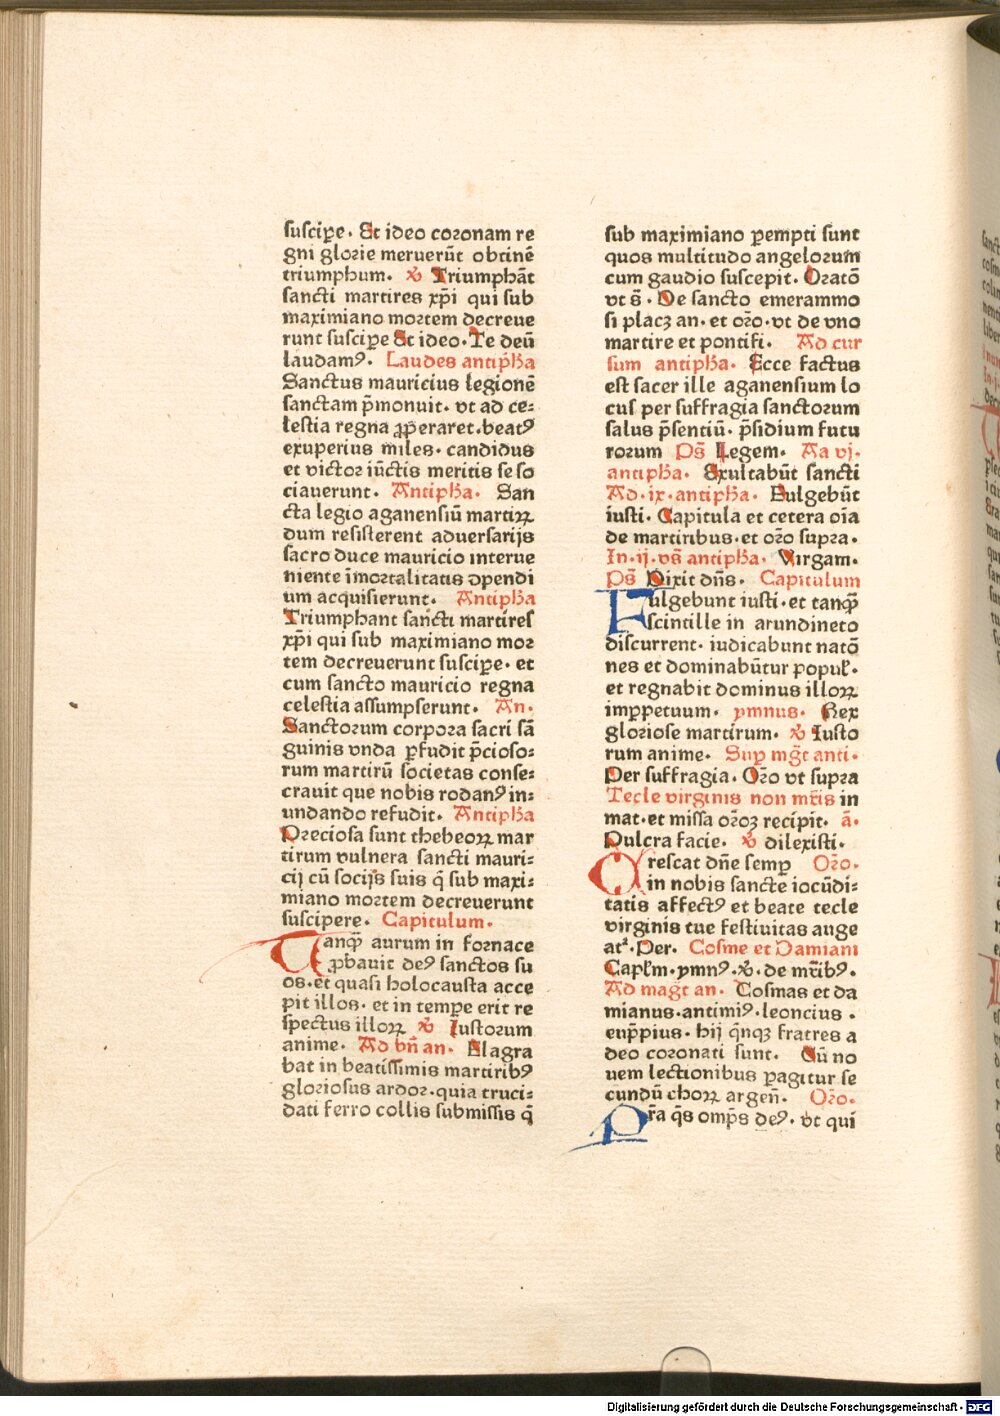 suscipe. Et ideo coronam re
gni glorie meruerūt obtinē
triumphum. ℟ Triumphāt
sancti martires xp̄i qui sub
maximiano mortem decreue
runt suscipe Et ideo. Te deū
laudamꝰ. Laudes antip̄ha
Sanctus mauricius legionē
sanctam p̄monuit. vt ad ce⸗
lestia regna ꝓperaret. beatꝰ
exuperius miles. candidus
et victor iūctis meritis se so
ciauerunt. Antipha. San
cta legio aganensiū martiꝝ
dum resisterent aduersarijs
sacro duce mauricio interue
niente īmortalitatis ꝯpendi
um acquisierunt. Antipha
Triumphant sancti martires
xp̄i qui sub maximiano mor
tem decreuerunt suscipe. et
cum sancto mauricio regna
celestia assumpserunt. An.
Sanctorum corpora sacri sā
guinis vnda ꝑfudit p̄cioso⸗
rum martirū societas conse⸗
crauit que nobis rodanꝰ in⸗
undando refudit. Antipha
Preciosa sunt thebeoꝝ mar
tirum vulnera sancti mauri⸗
cij cū socijs suis q̄ sub maxi⸗
miano mortem decreuerunt
suscipere. Capitulum.
Tanqꝫ aurum in fornace
ꝓbauit deꝰ sanctos su
os. et quasi holocausta acce
pit illos. et in tempe erit re
spectus illoꝝ ℟ Iustorum
anime. Ad bn̄ an. Flagra
bat in beatissimis martiribꝰ
gloriosus ardor. quia truci⸗
dati ferro collis submissis q̄
sub maximiano ꝑempti sunt
quos multitudo angelorum
cum gaudio suscepit. Oratō
vt s̄. De sancto emerammo
si placꝫ an. et or̄o. vt de vno
martire et pontifi. Ad cur
sum antipha. Ecce factus
est sacer ille aganensium lo
cus per suffragia sanctorum
salus p̄sentiū. p̄sidium futu
rorum Ps̄ Legem. Aa vj.
antipha. Exultabūt sancti
Ad. ix. antipha. Fulgebūt
iusti. Capitula et cetera oīa
de martiribus. et or̄o supra.
In. ij. vs̄ antipha. Virgam.
Ps̄ Dixit dn̄s. Capitulum
Fulgebunt iusti. et tanqꝫ
scintille in arundineto
discurrent. iudicabunt natō
nes et dominabūtur popul̄.
et regnabit dominus illoꝝ
imꝑpetuum. ymnus. Rex
gloriose martirum. ℟ Iusto
rum anime. Suꝑ mḡt anti.
Per suffragia. Or̄o vt supra
Tecle virginis non mr̄is in
mat. et missa or̄oꝫ recipit̄. ā.
Pulcra facie. ℟ dilexisti.
Crescat dn̄e semꝑ Or̄o.
in nobis sancte iocūdi⸗
tatis affectꝰ et beate tecle
virginis tue festiuitas auge
at². Per. Cosme et Damiani
Capl̄m. ymnꝰ. ℟. de mr̄ibꝰ.
Ad magt̄ an. Cosmas et da
mianus. antimiꝰ. leoncius.
eup̄pius. hij q̄nqꝫ fratres a
deo coronati sunt. Cū no
uem lectionibus ꝑagitur se
cundū choꝝ argen̄. Or̄o.
Pr̄a q̄s omp̄s deꝰ. vt qui
Digitalisierung gefördert durch die Deutsche Forschungsgemeinschaft - DFG